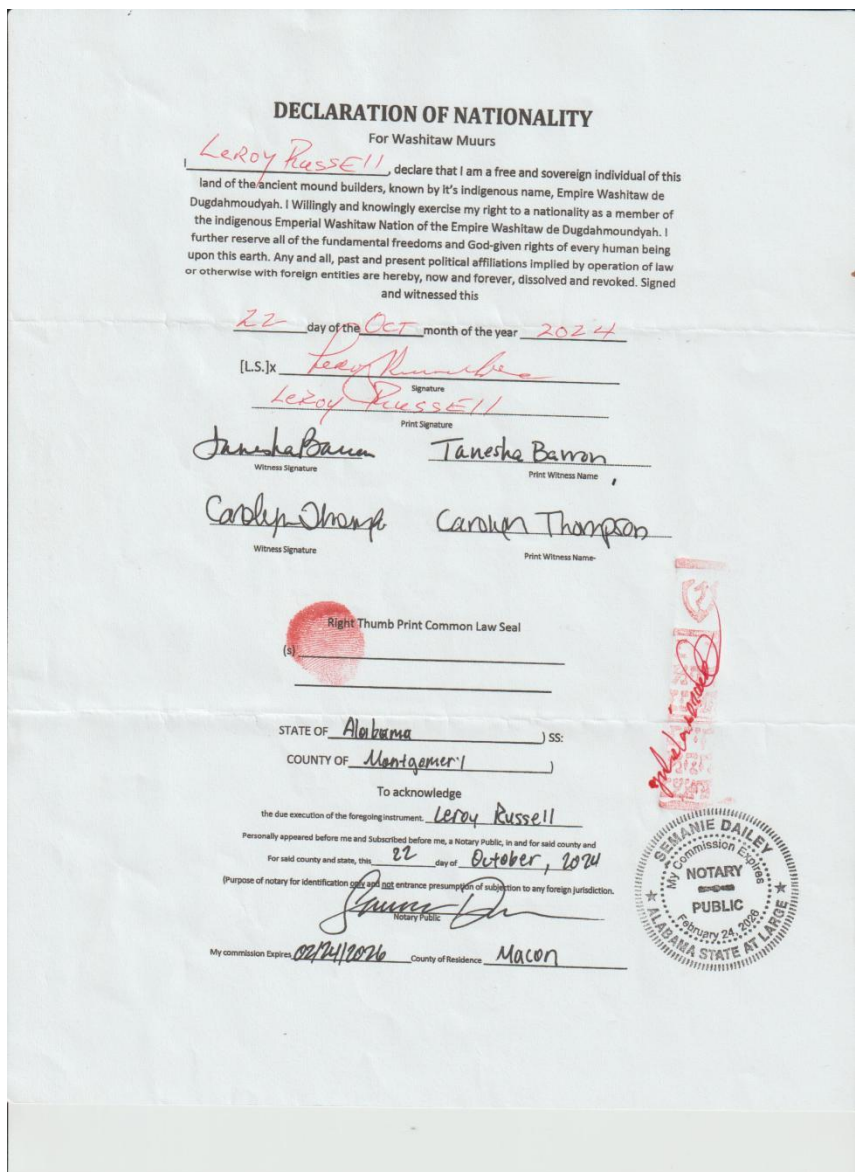 DECLARATION OF NATIONALITY
For Washitaw Muurs
I LeRoy RussEll, declare that I am a free and sovereign individual of this
land of the ancient mound builders, known by it's indigenous name, Empire Washitaw de
Dugdahmoudyah. I Willingly and knowingly exercise my right to a nationality as a member of
the indigenous Emperial Washitaw Nation of the Empire Washitaw de Dugdahmoundyah. I
further reserve all of the fundamental freedoms and God-given rights of every human being
upon this earth. Any and all, past and present political affiliations implied by operation of law
or otherwise with foreign entities are hereby, now and forever, dissolved and revoked. Signed
and witnessed this
22 day of the OCT month of the year 2024
[L.S.]x Leroy
Signature
LeRoy RussEll
Print Signature
Tanesha Barron Tanesha Barron
Witness Signature Print Witness Name
Carolyn Carolyn Thompson
Witness Signature Print Witness Name-
Right Thumb Print Common Law Seal
(s)
STATE OF Alabama ) SS:
COUNTY OF Montgomery )
To acknowledge
the due execution of the foregoing instrument. Leroy Russell
Personally appeared before me and Subscribed before me, a Notary Public, in and for said county and
For said county and state, this 22 day of October, 2024
(Purpose of notary for identification only and not entrance presumption of subjection to any foreign jurisdiction.
Notary Public
My commission Expires 02/24/2026 County of Residence Macon
SEMANIE DAILEY
My Commission Expires
NOTARY
PUBLIC
February 24, 2026
ALABAMA STATE AT LARGE